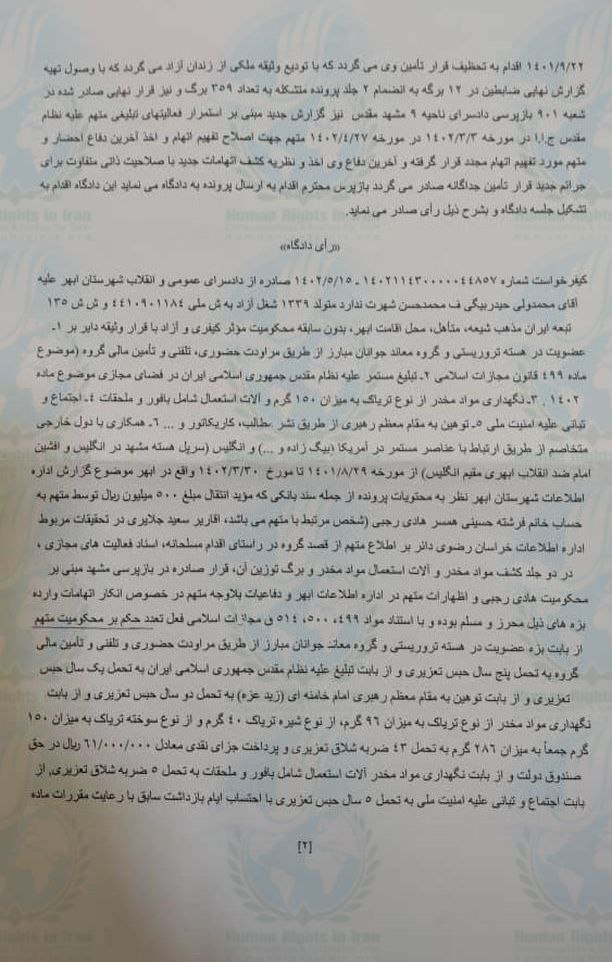 ۱۴۰۱/۹/۲۲ اقدام به تخفیف قرار تأمین وی می گردد که با تودیع وثیقه ملکی از زندان آزاد می گردد که با وصول تهیه
گزارش نهایی ضابطین در ۱۲ برگه به انضمام ۲ جلد پرونده متشکله به تعداد ۳۵۹ برگ و نیز قرار نهایی صادر شده در
شعبه ۹۰۱ بازپرسی دادسرای ناحیه ۹ مشهد مقدس نیز گزارش جدید مبنی بر استمرار فعالیتهای تبلیغی متهم علیه نظام
مقدس ج.ا.ا در مورخه ۱۴۰۲/۳/۳ در مورخه ۱۴۰۲/۴/۲۷ متهم جهت اصلاح تفهیم اتهام و اخذ آخرین دفاع احضار و
متهم مورد تفهیم اتهام مجدد قرار گرفته و آخرین دفاع وی اخذ و نظریه کشف اتهامات جدید با صلاحیت ذاتی متفاوت برای
جرائم جدید قرار تأمین جداگانه صادر می گردد بازپرس محترم اقدام به ارسال پرونده به دادگاه می نماید این دادگاه اقدام به
تشکیل جلسه دادگاه و بشرح ذیل رأی صادر می نماید.
«رأی دادگاه»
کیفرخواست شماره ۱۴۰۲۱۱۴۳۰۰۰۰۰۴۴۸۵۷ - ۱۴۰۲/۵/۱۵ صادره از دادسرای عمومی و انقلاب شهرستان ابهر علیه
آقای محمدولی حیدربیگی ف محمدحسن شهرت ندارد متولد ۱۳۳۹ شغل آزاد به ش ملی ۴۴۱۰۹۰۱۱۸۴ و ش ش ۱۳۵
تبعه ایران مذهب شیعه، متأهل، محل اقامت ابهر، بدون سابقه محکومیت مؤثر کیفری و آزاد با قرار وثیقه دایر بر ۱-
عضویت در هسته تروریستی و گروه معاند جوانان مبارز از طریق مراودت حضوری، تلفنی و تأمین مالی گروه (موضوع
ماده ۴۹۹ قانون مجازات اسلامی ۲- تبلیغ مستمر علیه نظام مقدس جمهوری اسلامی ایران در فضای مجازی موضوع ماده
۱۴۰۲ . ۳- نگهداری مواد مخدر از نوع تریاک به میزان ۱۵۰ گرم و آلات استعمال شامل بافور و ملحقات ۴- اجتماع و
تبانی علیه امنیت ملی ۵- توهین به مقام معظم رهبری از طریق نشر مطالب، کاریکاتور و ... ۶- همکاری با دول خارجی
متخاصم از طریق ارتباط با عناصر مستمر در آمریکا (بیگ زاده و ...) و انگلیس (سرپل هسته مشهد در انگلیس و افشین
امام ضد انقلاب ابهری مقیم انگلیس) از مورخه ۱۴۰۱/۸/۲۹ تا مورخ ۱۴۰۲/۳/۳۰ واقع در ابهر موضوع گزارش اداره
اطلاعات شهرستان ابهر نظر به محتویات پرونده از جمله سند بانکی که مؤید انتقال مبلغ ۵۰۰ میلیون ریال توسط متهم به
حساب خانم فرشته حسینی همسر هادی رجبی (شخص مرتبط با متهم می باشد، اقاریر سعید جلایری در تحقیقات مربوط
اداره اطلاعات خراسان رضوی دائر بر اطلاع متهم از قصد گروه در راستای اقدام مسلحانه، اسناد فعالیت های مجازی ،
در دو جلد کشف مواد مخدر و آلات استعمال مواد مخدر و برگ توزین آن، قرار صادره در بازپرسی مشهد مبنی بر
محکومیت هادی رجبی و اظهارات متهم در اداره اطلاعات ابهر و دفاعیات بلاوجه متهم در خصوص انکار اتهامات وارده
بزه های ذیل محرز و مسلم بوده و با استناد مواد ۴۹۹، ۵۰۰، ۵۱۴ ق مجازات اسلامی فعل تعدد حکم بر محکومیت متهم
از بابت بزه عضویت در هسته تروریستی و گروه معاند جوانان مبارز از طریق مراودت حضوری و تلفنی و تأمین مالی
گروه به تحمل پنج سال حبس تعزیری و از بابت تبلیغ علیه نظام مقدس جمهوری اسلامی ایران به تحمل یک سال حبس
تعزیری و از بابت توهین به مقام معظم رهبری امام خامنه ای (زید عزه) به تحمل دو سال حبس تعزیری و از بابت
نگهداری مواد مخدر از نوع تریاک به میزان ۹۶ گرم، از نوع شیره تریاک ۴۰ گرم و از نوع سوخته تریاک به میزان ۱۵۰
گرم جمعاً به میزان ۲۸۶ گرم به تحمل ۴۳ ضربه شلاق تعزیری و پرداخت جزای نقدی معادل ۶۱/۰۰۰/۰۰۰ ریال در حق
صندوق دولت و از بابت نگهداری مواد مخدر آلات استعمال شامل بافور و ملحقات به تحمل ۵ ضربه شلاق تعزیری، از
بابت اجتماع و تبانی علیه امنیت ملی به تحمل ۵ سال حبس تعزیری با احتساب ایام بازداشت سابق با رعایت مقررات ماده
[۲]
Human Rights in Iran